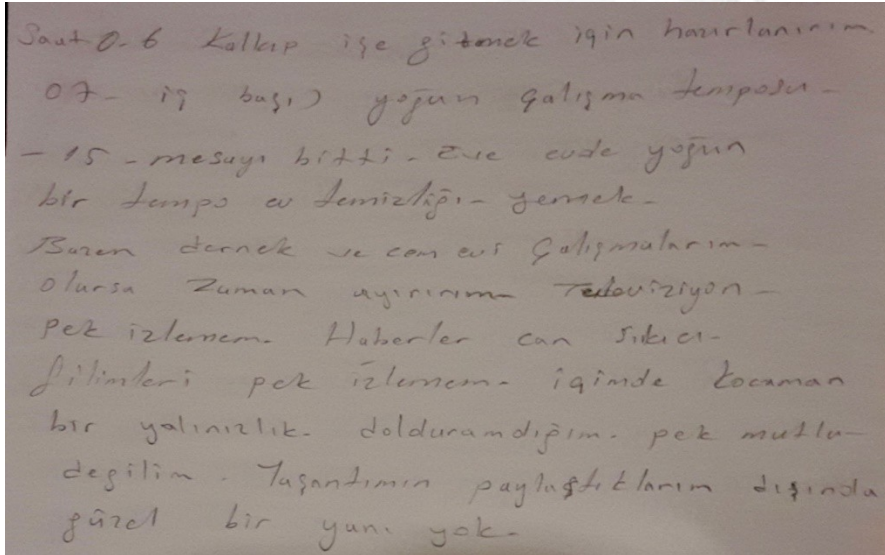 Saat 0.6 Kalkıp işe gitmek için hazırlanırım
07- iş başı) yoğun çalışma temposu-
- 15 - mesayı bitti - Eve evde yoğun
bir tempo ev temizliği - yemek -
Bazen dernek ve cem evi Çalışmalarım -
olursa zaman ayırırım Televiziyon -
pek izlemem. Haberler can sıkıcı -
filimleri pek izlemem - içimde kocaman
bir yalınızlık - dolduramdığım. pek mutlu -
değilim. Yaşantımın paylaştıklarım dışında
güzel bir yanı yok -